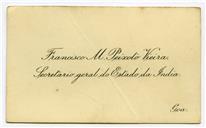 Francisco M. Peixoto Vieira.
Secretario geral do Estado da India
Goa.